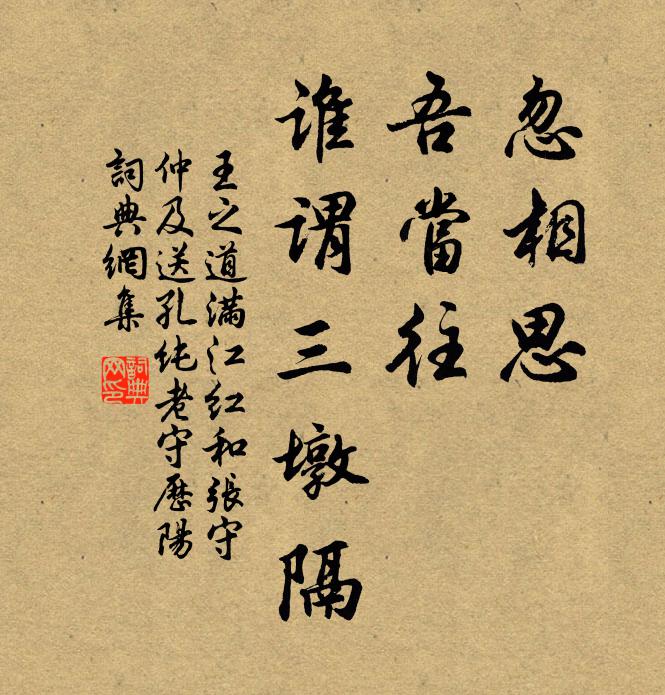 忽相思
吾當往
誰謂三墩隔
王之道滿江紅和張守
仲及送孔純老守歷陽
詞典網集
詞典
网印